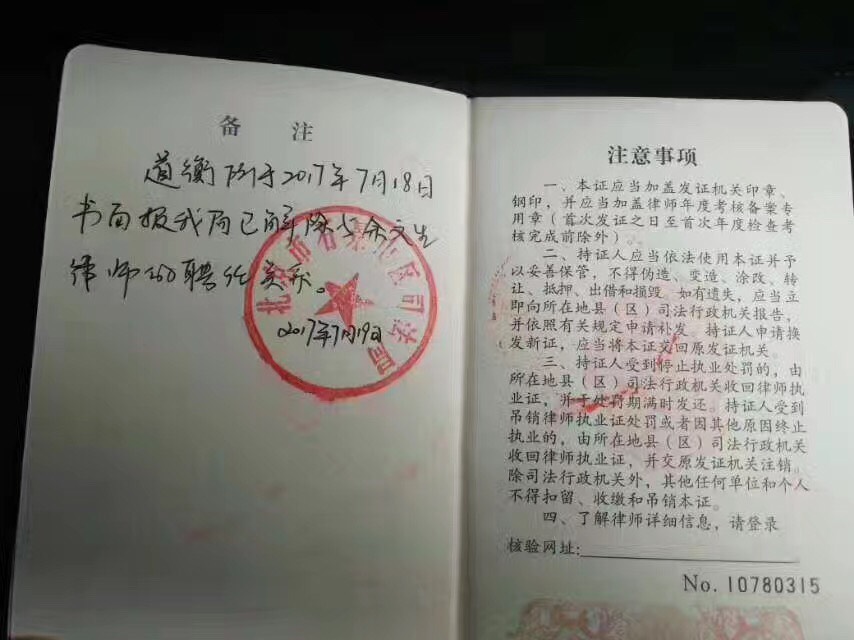 备 注
道衡所于2017年7月18日
书面报我局已解除与余文生
律师的聘任关系。
2017年7月19日
北京市石景山区司法局
注意事项
一、本证应当加盖发证机关印章、
钢印，并应当加盖律师年度考核备案专
用章（首次发证之日至首次年度检查考
核完成前除外）。
二、持证人应当依法使用本证并予
以妥善保管，不得伪造、变造、涂改、转
让、抵押、出借和损毁。如有遗失，应当立
即向所在地县（区）司法行政机关报告，
并依照有关规定申请补发。持证人申请换
发新证，应当将本证交回原发证机关。
三、持证人受到停止执业处罚的，由
所在地县（区）司法行政机关收回律师执
业证，并于处罚期满时发还。持证人受到
吊销律师执业证处罚或者因其他原因终止
执业的，由所在地县（区）司法行政机关
收回律师执业证，并交原发证机关注销。
除司法行政机关外，其他任何单位和个人
不得扣留、收缴和吊销本证。
四、了解律师详细信息，请登录
核验网址：
No. 10780315